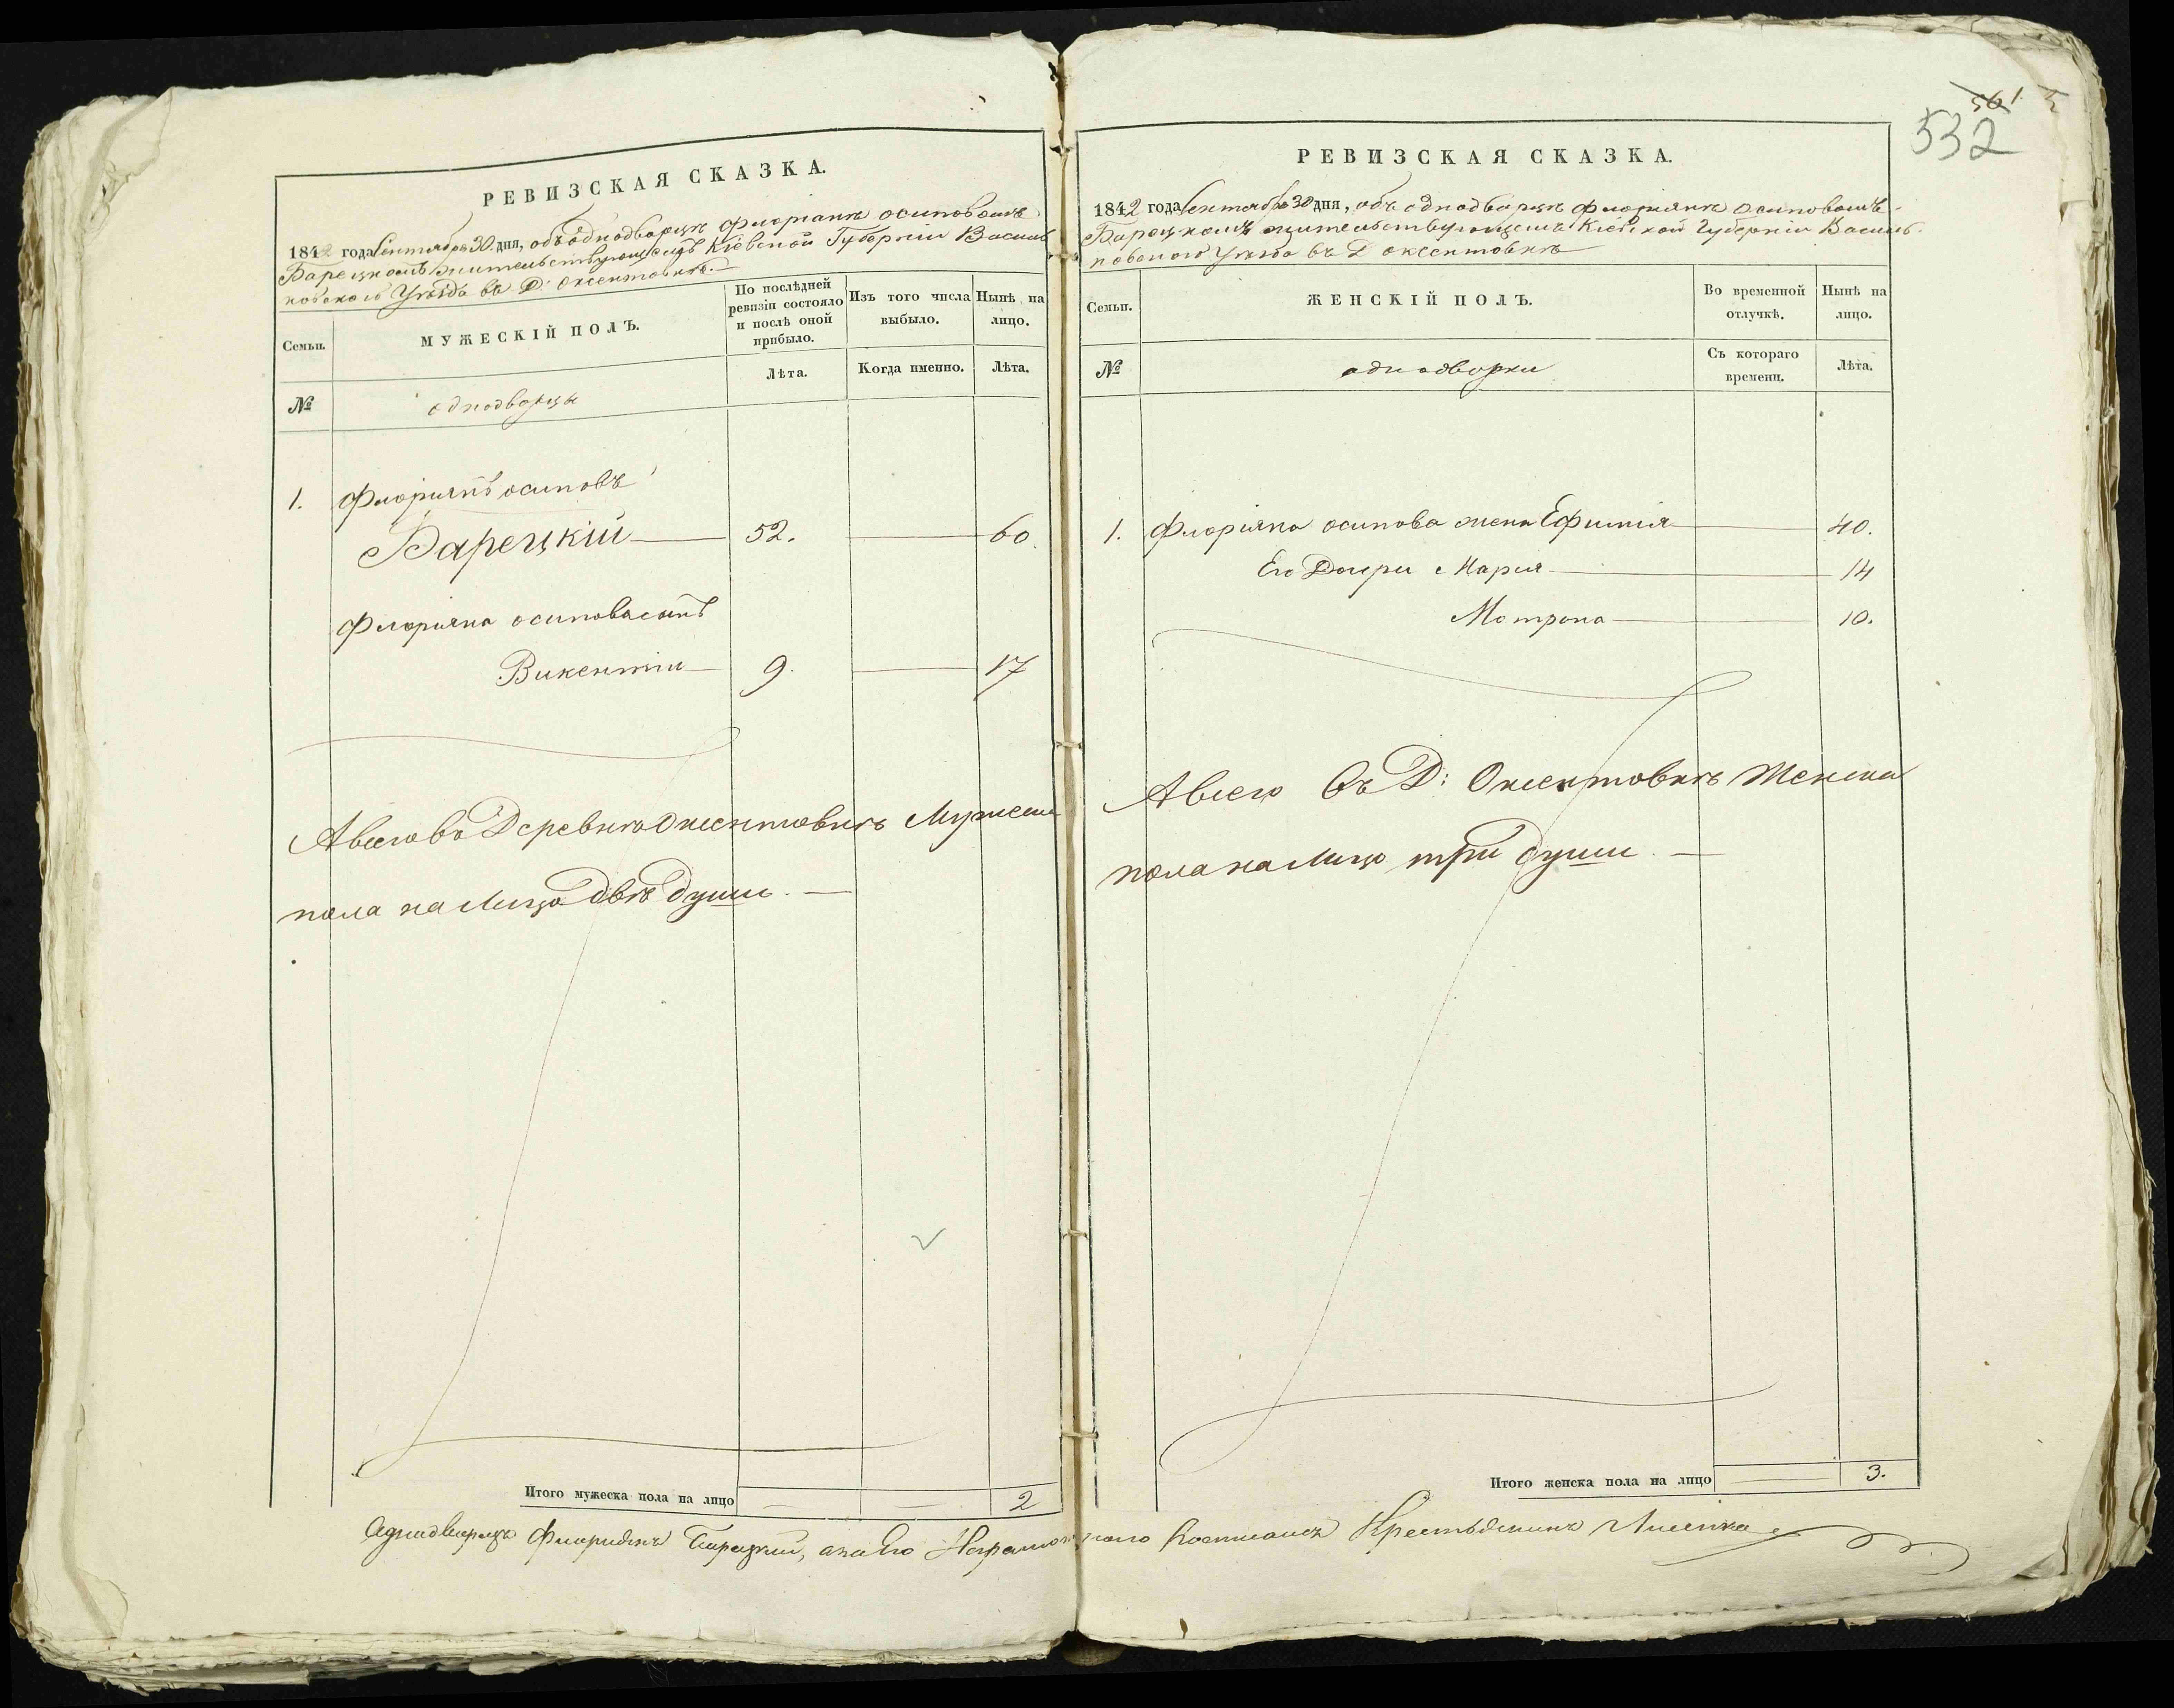 РЕВИЗСКАЯ СКАЗКА.
1842 года Сентября 30 дня, объ однодворцѣ Флоріанѣ Осиповомъ
Барецкомъ жительствующемъ Кіевской Губерніи Василь
ковского Уѣзда въ Д: Оксентовкѣ.
Семьи.
МУЖЕСКІЙ ПОЛЪ.
По послѣдней ревизіи состояло и послѣ оной прибыло.
Изъ того числа выбыло.
Нынѣ на лицо.
№
однодворцы
Лѣта.
Когда именно.
Лѣта.
1. Флоріянъ осиповъ
Барецкій 52. 60.
Флоріяна осипова сынъ
Викентіи 9. 17
А всего въ Деревнѣ Оксентовкѣ Мужеска
пола на Лицо двѣ души.
Итого мужеска пола на лицо 2
532
561
РЕВИЗСКАЯ СКАЗКА.
1842 года Сентября 30 дня, объ однодворцѣ Флоріянѣ Осиповомъ
Барецкомъ жительствующемъ Кіевской Губерніи Василь-
ковского Уѣзда въ Д Оксентовкѣ
Семьи.
ЖЕНСКІЙ ПОЛЪ.
Во временной отлучкѣ.
Нынѣ на лицо.
№
однодворки
Съ котораго времени.
Лѣта.
1. Флоріяна осипова жена Ефимія 40.
Его Дочери Мария 14
Мотрона 10.
А всего въ Д: Оксентовкѣ Женска
пола на Лицо три души.
Итого женска пола на лицо 3.
Однодворецъ Флоріянъ Барецкий, а за его Неграмотного Росписался Крестьянинъ